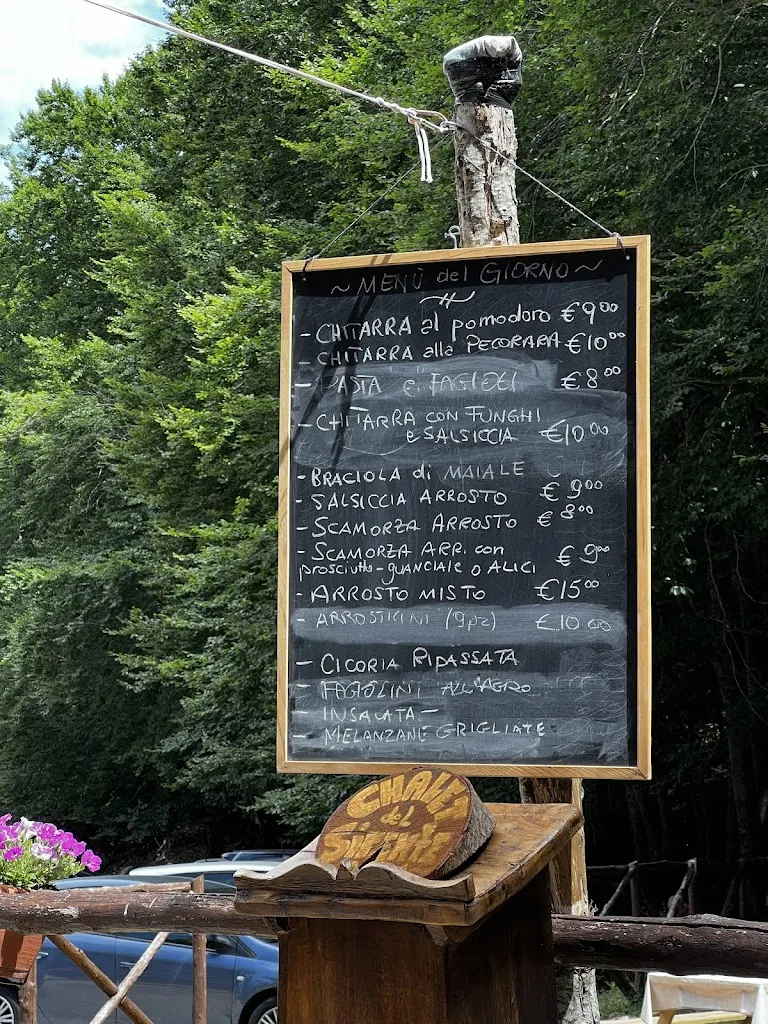 ~ MENÙ del GIORNO ~
- CHITARRA al pomodoro €9⁰⁰
- CHITARRA alla PECORARA €10⁰⁰
- PASTA e FAGIOLI €8⁰⁰
- CHITARRA CON FUNGHI
e SALSICCIA €10⁰⁰
- BRACIOLA di MAIALE € 9⁰⁰
- SALSICCIA ARROSTO € 8⁰⁰
- SCAMORZA ARROSTO
- SCAMORZA ARR. con € 9⁰⁰
prosciutto-guanciale o ALICI
- ARROSTO MISTO €15⁰⁰
- ARROSTICINI (9pz) €10 00
- CICORIA RIPASSATA
- FAGIOLINI ALL'AGRO
- INSALATA -
- MELANZANE GRIGLIATE
CHALET
del